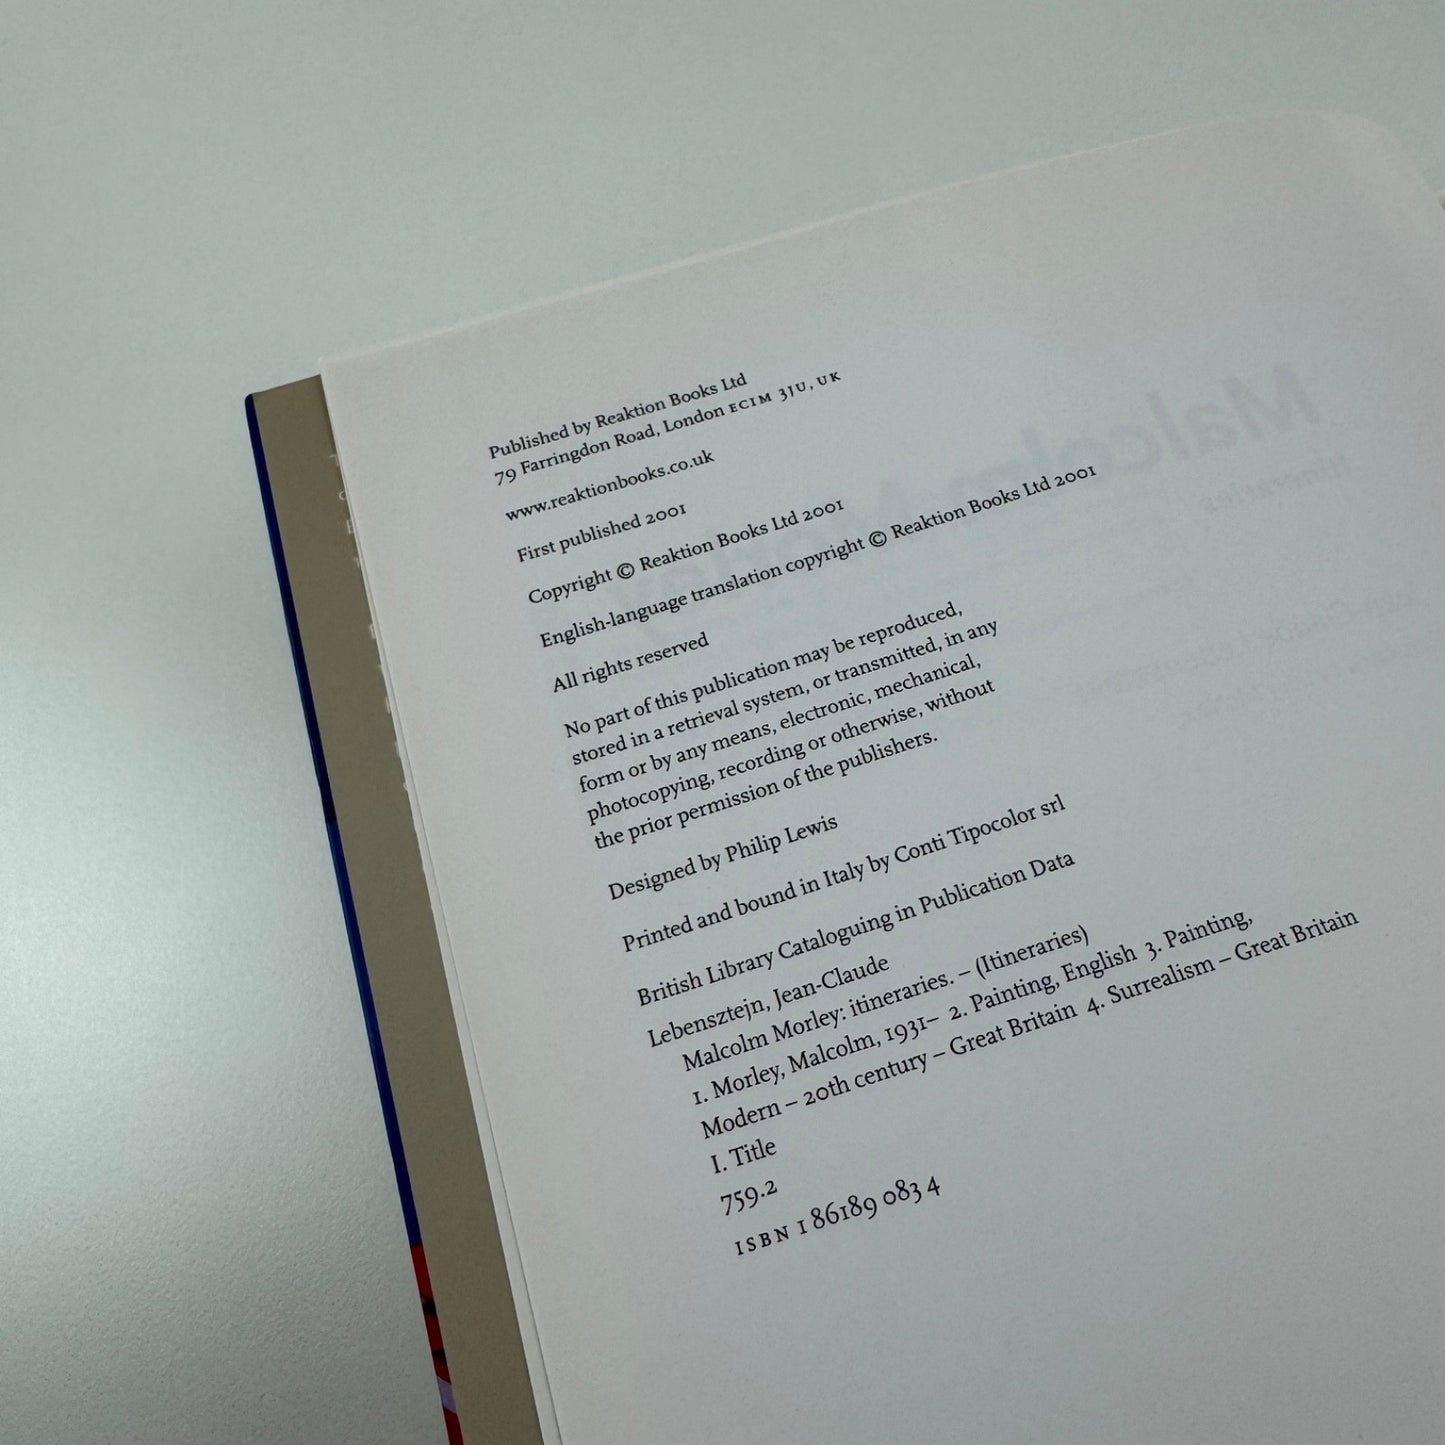 Published by Reaktion Books Ltd
79 Farringdon Road, London EC1M 3JU, UK
www.reaktionbooks.co.uk
First published 2001
Copyright © Reaktion Books Ltd 2001
English-language translation copyright © Reaktion Books Ltd 2001
All rights reserved
No part of this publication may be reproduced,
stored in a retrieval system, or transmitted, in any
form or by any means, electronic, mechanical,
photocopying, recording or otherwise, without
the prior permission of the publishers.
Designed by Philip Lewis
Printed and bound in Italy by Conti Tipocolor srl
British Library Cataloguing in Publication Data
Lebensztejn, Jean-Claude
Malcolm Morley: itineraries. – (Itineraries)
1. Morley, Malcolm, 1931– 2. Painting, English 3. Painting,
Modern – 20th century – Great Britain 4. Surrealism – Great Britain
I. Title
759.2
ISBN 1 86189 083 4